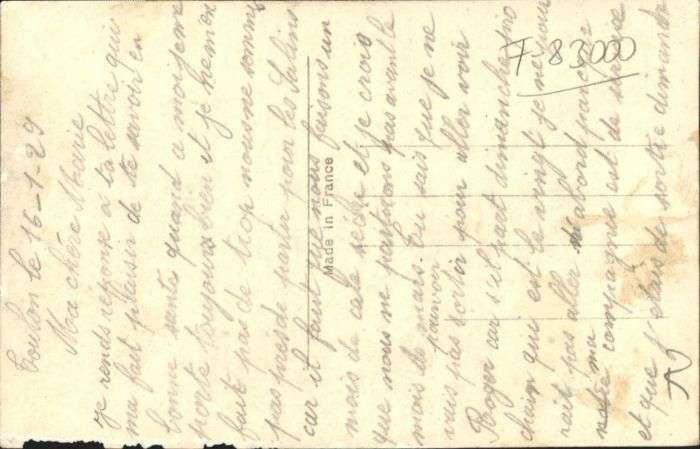 Toulon le 16-1-29
Ma chère Marie
Je rends réponse à ta lettre qui
ma fait plaisir de te savoir en
bonne santé quand a moi je me
porte toujours bien et je ne men
fait pas de trop nous ne sommes
pas pres de partir pour les Salins
car il faut que nous faisons un
mois de cale sèche et je crois
que nous ne partirons pas avant le
mois de mars. Tu sais que je ne
pouvoir
vais pas sortir pour aller voir
Roger car s'il part dimanche pro
chain qui est le vingt je ne pour
rait pas aller d'abord parce que
ma
notre compagnie est de service
et que j'etais de sortie dimanche
F 83000
Made in France